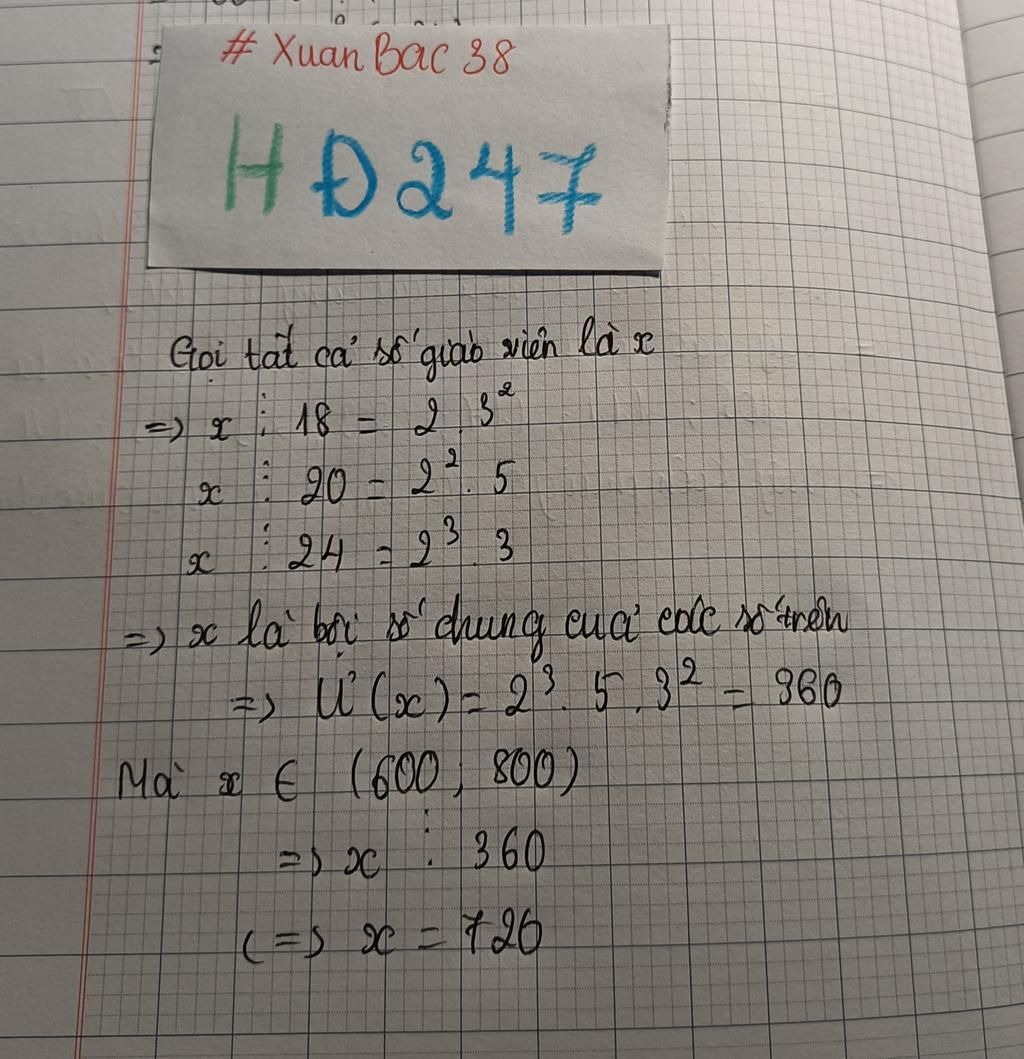 # XuanBac 38
HĐ247
Gọi tất cả số giáo viên là x
=> x ⋮ 18 = 2 . 3²
x ⋮ 20 = 2² . 5
x ⋮ 24 = 2³ . 3
=> x là bội số chung của các số trên
=> Ư(x) = 2³ . 5 . 3² = 360
Mà x ∈ (600, 800)
=> x ⋮ 360
<=> x = 720